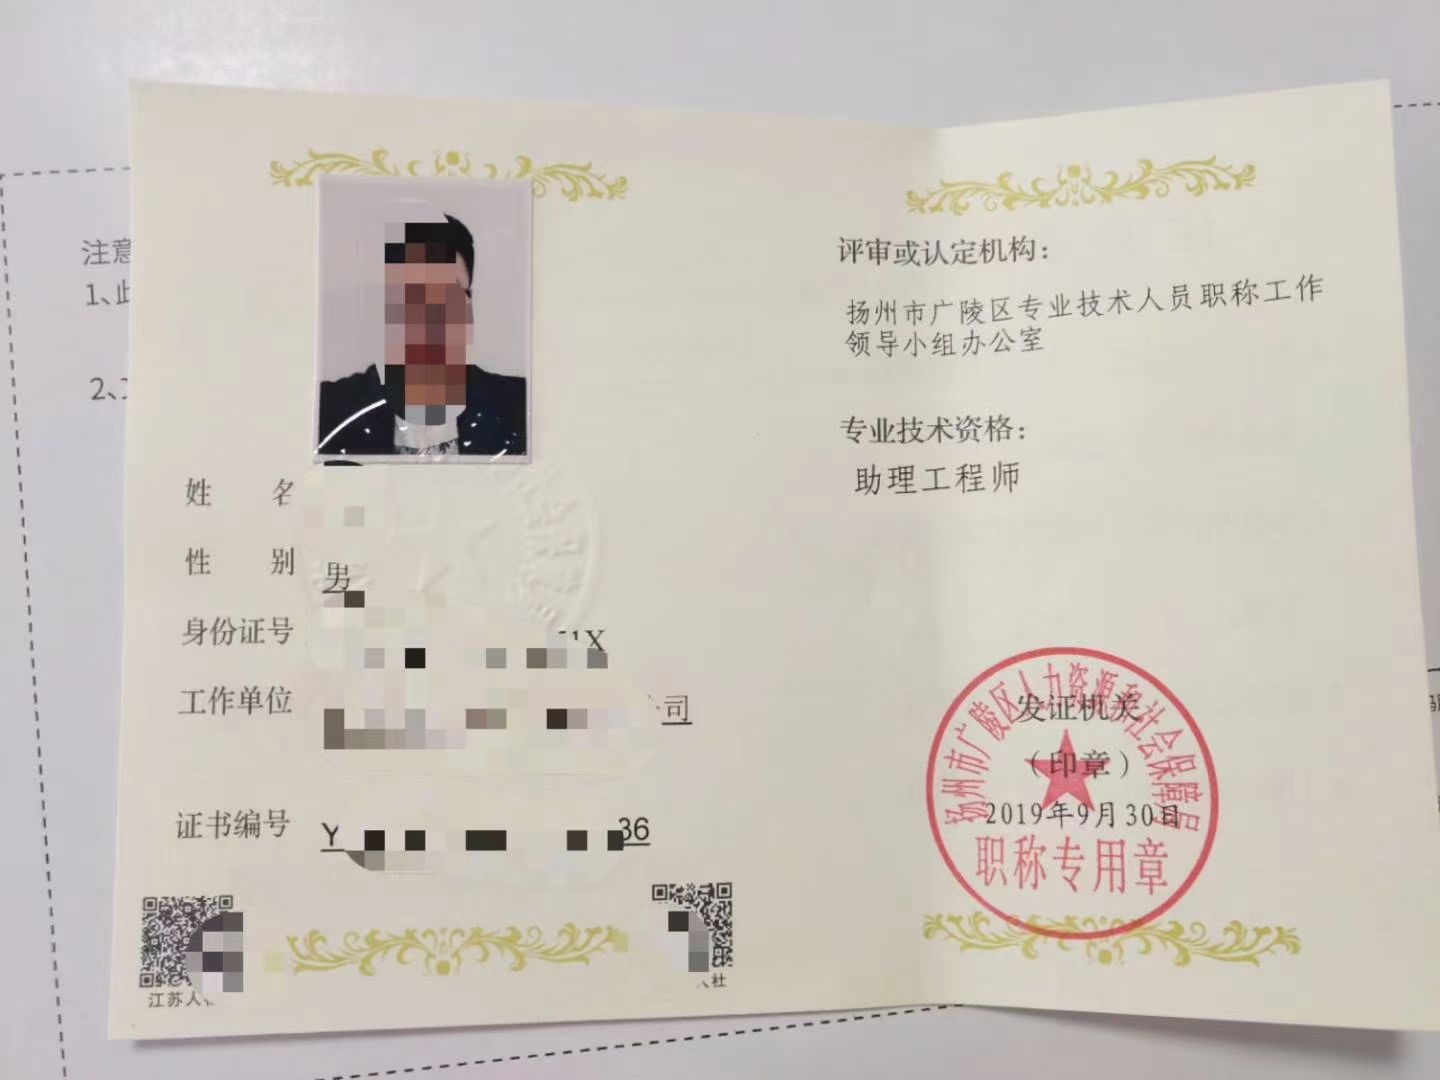 注意
1、此
2、
姓 名
性 别 男
身份证号 51X
工作单位 公司
证书编号 Y 36
江苏人社
人社
评审或认定机构：
扬州市广陵区专业技术人员职称工作
领导小组办公室
专业技术资格：
助理工程师
扬州市广陵区人力资源和社会保障局
发证机关
（印章）
2019年9月30日
职称专用章